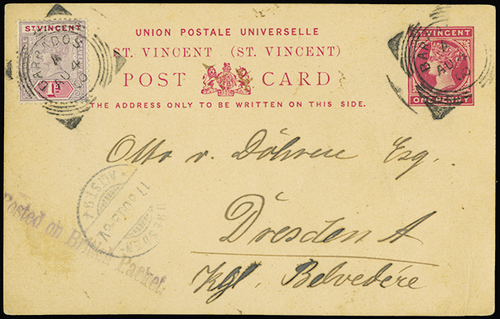 UNION POSTALE UNIVERSELLE
ST. VINCENT (ST. VINCENT)
POST CARD
THE ADDRESS ONLY TO BE WRITTEN ON THIS SIDE.
ST VINCENT
1D
BARBADOS
AU 4
ST. VINCENT
ONE PENNY
BARBADOS
AU 4
Otto v. Döhren Esq.
Dresden A
Kgl. Belvedere
Posted on British Packet.
DRESDEN
ALTST.